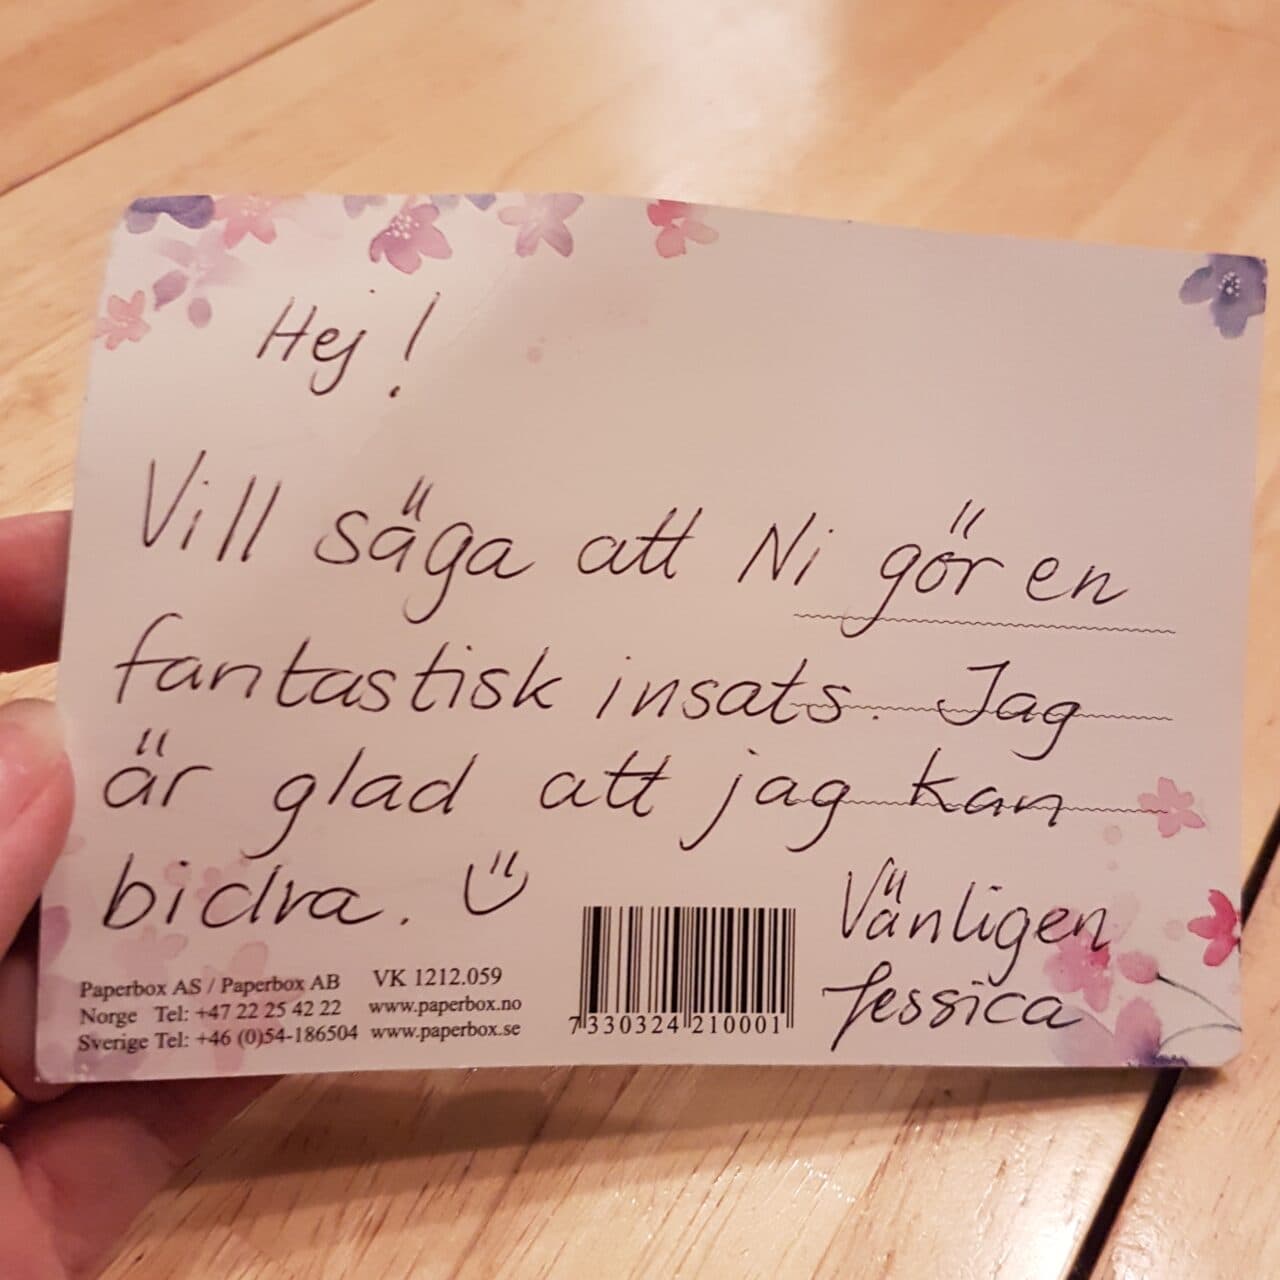 Hej!
Vill säga att Ni gör en
fantastisk insats. Jag
är glad att jag kan
bidra.
Vänligen
Jessica
Paperbox AS / Paperbox AB VK 1212.059
Norge Tel: +47 22 25 42 22 www.paperbox.no
Sverige Tel: +46 (0)54-186504 www.paperbox.se
7 330324 210001